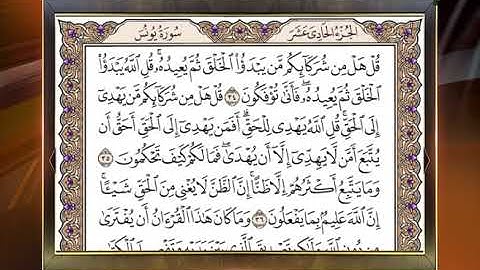 الجزء الحادي عشر
سورة يونس
قُلْ هَلْ مِن شُرَكَآئِكُم مَّن يَبْدَؤُا۟ ٱلْخَلْقَ ثُمَّ يُعِيدُهُۥ ۚ قُلِ ٱللَّهُ يَبْدَؤُا۟
ٱلْخَلْقَ ثُمَّ يُعِيدُهُۥ ۖ فَأَنَّىٰ تُؤْفَكُونَ ٣٤ قُلْ هَلْ مِن شُرَكَآئِكُم مَّن يَهْدِىٓ
إِلَى ٱلْحَقِّ ۚ قُلِ ٱللَّهُ يَهْدِى لِلْحَقِّ ۗ أَفَمَن يَهْدِىٓ إِلَى ٱلْحَقِّ أَحَقُّ أَن
يُتَّبَعَ أَمَّن لَّا يَهِدِّىٓ إِلَّآ أَن يُهْدَىٰ ۖ فَمَا لَكُمْ كَيْفَ تَحْكُمُونَ ٣٥
وَمَا يَتَّبِعُ أَكْثَرُهُمْ إِلَّا ظَنًّا ۚ إِنَّ ٱلظَّنَّ لَا يُغْنِى مِنَ ٱلْحَقِّ شَيْـًٔا ۚ
إِنَّ ٱللَّهَ عَلِيمٌۢ بِمَا يَفْعَلُونَ ٣٦ وَمَا كَانَ هَٰذَا ٱلْقُرْءَانُ أَن يُفْتَرَىٰ
مِن دُونِ ٱللَّهِ وَلَٰكِن تَصْدِيقَ ٱلَّذِى بَيْنَ يَدَيْهِ وَتَفْصِيلَ ٱلْكِتَٰبِ